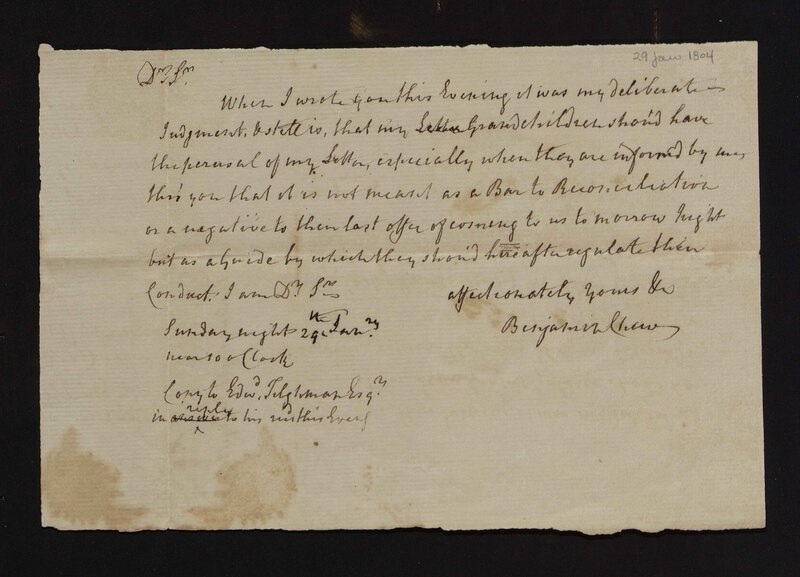 29 Jan 1804
Dr. Sr.
When I wrote you this Evening it was my deliberate
Judgment, & still is, that my Letter Grandchildren should have
the perusal of my Letter, especially when they are informed by me,
thro' you that it is not meant as a Bar to Reconciliation
or a negative to their last offer of coming to us to morrow Night
but as a Guide by which they should hereafter regulate their
Conduct. I am Dr. Sr.
affectionately yours &c
Benjamin Chew
Sunday night 29th Janry.
near 10 o Clock
Copy to Edwd. Tilghman Esqr.
in answer reply to his recd this Eveng